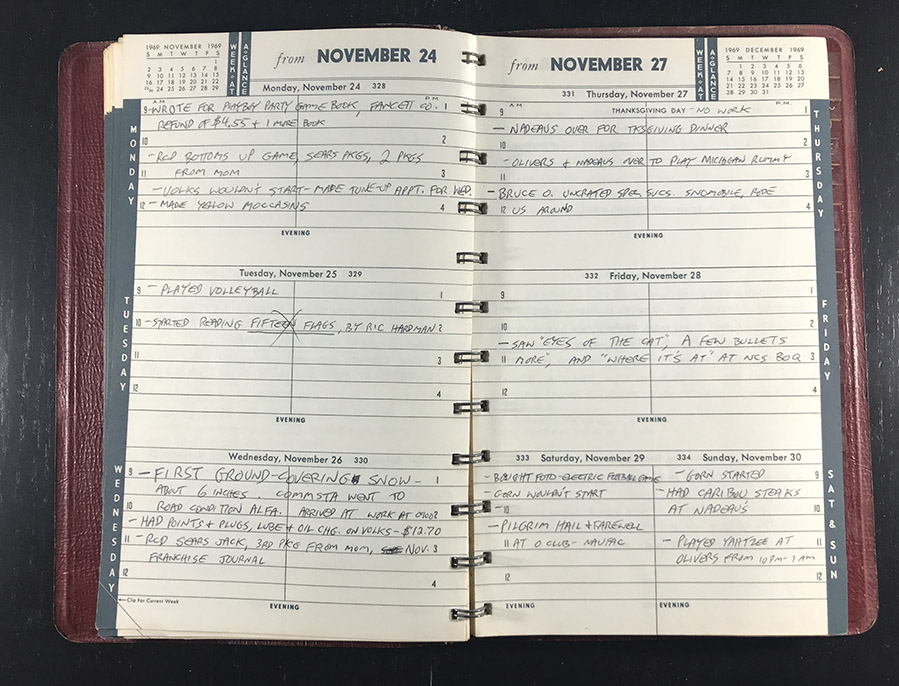 1969 NOVEMBER 1969
S M T W T F S
1
2 3 4 5 6 7 8
9 10 11 12 13 14 15
16 17 18 19 20 21 22
23/30 24 25 26 27 28 29
WEEK-AT
A-GLANCE
from NOVEMBER 24
Monday, November 24 328
A M
P M
MONDAY
9 - WROTE FOR PLAYBOY PARTY GAME BOOK, FAWCETT CO. 1
REFUND OF $4.55 + 1 MORE BOOK
10 2
- RCD BOTTOMS UP GAME, SEARS PKGS, 2 PKGS
11 FROM MOM 3
- VOLKS WOULDN'T START - MADE TUNE-UP APPT. FOR WED.
12 - MADE YELLOW MOCCASINS 4
EVENING
Tuesday, November 25 329
TUESDAY
9 - PLAYED VOLLEYBALL 1
10 - STARTED READING FIFTEEN FLAGS, BY RIC HARDMAN 2
11 3
12 4
EVENING
Wednesday, November 26 330
WEDNESDAY
9 - FIRST GROUND-COVERING SNOW - 1
ABOUT 6 INCHES. COMMSTA WENT TO
10 ROAD CONDITION ALFA. ARRIVED AT WORK AT 0900 2
- HAD POINTS + PLUGS, LUBE + OIL CHG. ON VOLKS - $12.70
11 - RCD SEARS JACK, 3RD PKG FROM MOM, NOV. 3
FRANCHISE JOURNAL
12 4
←Clip For Current Week
EVENING
from NOVEMBER 27
WEEK-AT
A-GLANCE
1969 DECEMBER 1969
S M T W T F S
1 2 3 4 5 6
7 8 9 10 11 12 13
14 15 16 17 18 19 20
21 22 23 24 25 26 27
28 29 30 31
331 Thursday, November 27
A M
P M
THURSDAY
9 THANKSGIVING DAY - NO WORK 1
- NADEAUS OVER FOR TKSGIVING DINNER
10 2
- OLIVERS + NADEAUS OVER TO PLAY MICHIGAN RUMMY
11 3
- BRUCE O. UNCRATED SPEC. SVCS. SNOMOBILE, RODE
12 US AROUND 4
EVENING
332 Friday, November 28
FRIDAY
9 1
10 2
- SAW "EYES OF THE CAT", A FEW BULLETS
11 MORE", AND "WHERE IT'S AT" AT NCS BOQ 3
12 4
EVENING
333 Saturday, November 29
- BOUGHT FOTO-ELECTRIC FOOTBALL GAME
- GORN WOULDN'T START
- 10
- PILGRIM HAIL + FAREWELL
11 AT O CLUB -
12
EVENING
334 Sunday, November 30
SAT & SUN
- GORN STARTED 9
- HAD CARIBOU STEAKS
AT NADEAU'S 10
- PLAYED YAHTZEE AT 11
OLIVERS FROM 10PM-1AM
12
EVENING